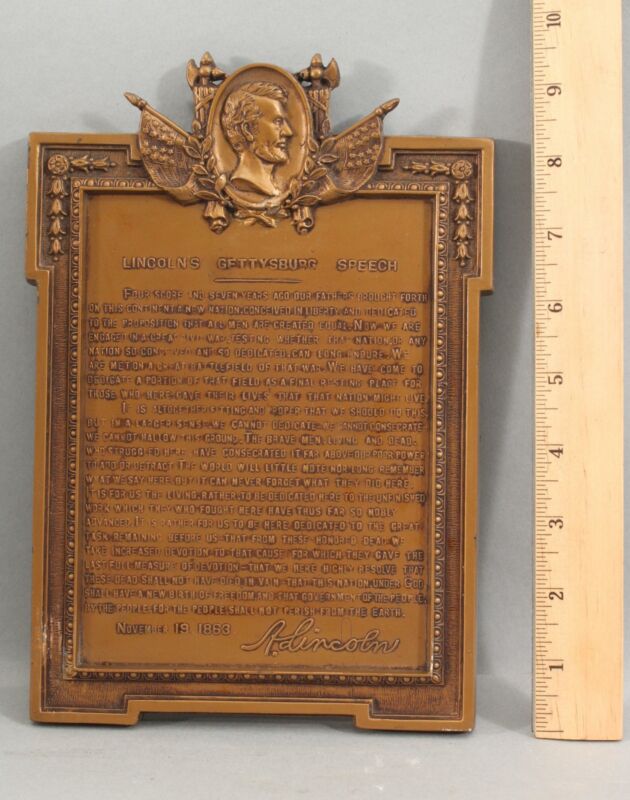 LINCOLN'S GETTYSBURG SPEECH
FOUR SCORE AND SEVEN YEARS AGO OUR FATHERS BROUGHT FORTH
ON THIS CONTINENT A NEW NATION, CONCEIVED IN LIBERTY AND DEDICATED
TO THE PROPOSITION THAT ALL MEN ARE CREATED EQUAL. NOW WE ARE
ENGAGED IN A GREAT CIVIL WAR, TESTING WHETHER THAT NATION OR ANY
NATION SO CONCEIVED AND SO DEDICATED, CAN LONG ENDURE. WE
ARE MET ON A GREAT BATTLEFIELD OF THAT WAR. WE HAVE COME TO
DEDICATE A PORTION OF THAT FIELD AS A FINAL RESTING PLACE FOR
THOSE WHO HERE GAVE THEIR LIVES THAT THAT NATION MIGHT LIVE.
IT IS ALTOGETHER FITTING AND PROPER THAT WE SHOULD DO THIS.
BUT IN A LARGER SENSE WE CANNOT DEDICATE-WE CANNOT CONSECRATE
WE CANNOT HALLOW THIS GROUND. THE BRAVE MEN, LIVING AND DEAD,
WHO STRUGGLED HERE HAVE CONSECRATED IT FAR ABOVE OUR POOR POWER
TO ADD OR DETRACT. THE WORLD WILL LITTLE NOTE NOR LONG REMEMBER
WHAT WE SAY HERE, BUT IT CAN NEVER FORGET WHAT THEY DID HERE.
IT IS FOR US THE LIVING, RATHER, TO BE DEDICATED HERE TO THE UNFINISHED
WORK WHICH THEY WHO FOUGHT HERE HAVE THUS FAR SO NOBLY
ADVANCED. IT IS RATHER FOR US TO BE HERE DEDICATED TO THE GREAT
TASK REMAINING BEFORE US-THAT FROM THESE HONORED DEAD WE
TAKE INCREASED DEVOTION TO THAT CAUSE FOR WHICH THEY GAVE THE
LAST FULL MEASURE OF DEVOTION-THAT WE HERE HIGHLY RESOLVE THAT
THESE DEAD SHALL NOT HAVE DIED IN VAIN-THAT THIS NATION, UNDER GOD
SHALL HAVE A NEW BIRTH OF FREEDOM AND THAT GOVERNMENT OF THE PEOPLE,
BY THE PEOPLE, FOR THE PEOPLE, SHALL NOT PERISH FROM THE EARTH.
NOVEMBER 19. 1863 A. Lincoln
10
9
8
7
6
5
4
3
2
1